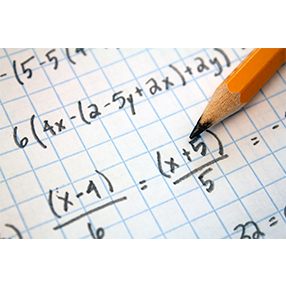 -(5-5(4
6(4x-(2-5y+2x)+2y)
(x-4)/6 = (x+5)/5 = -
32 =